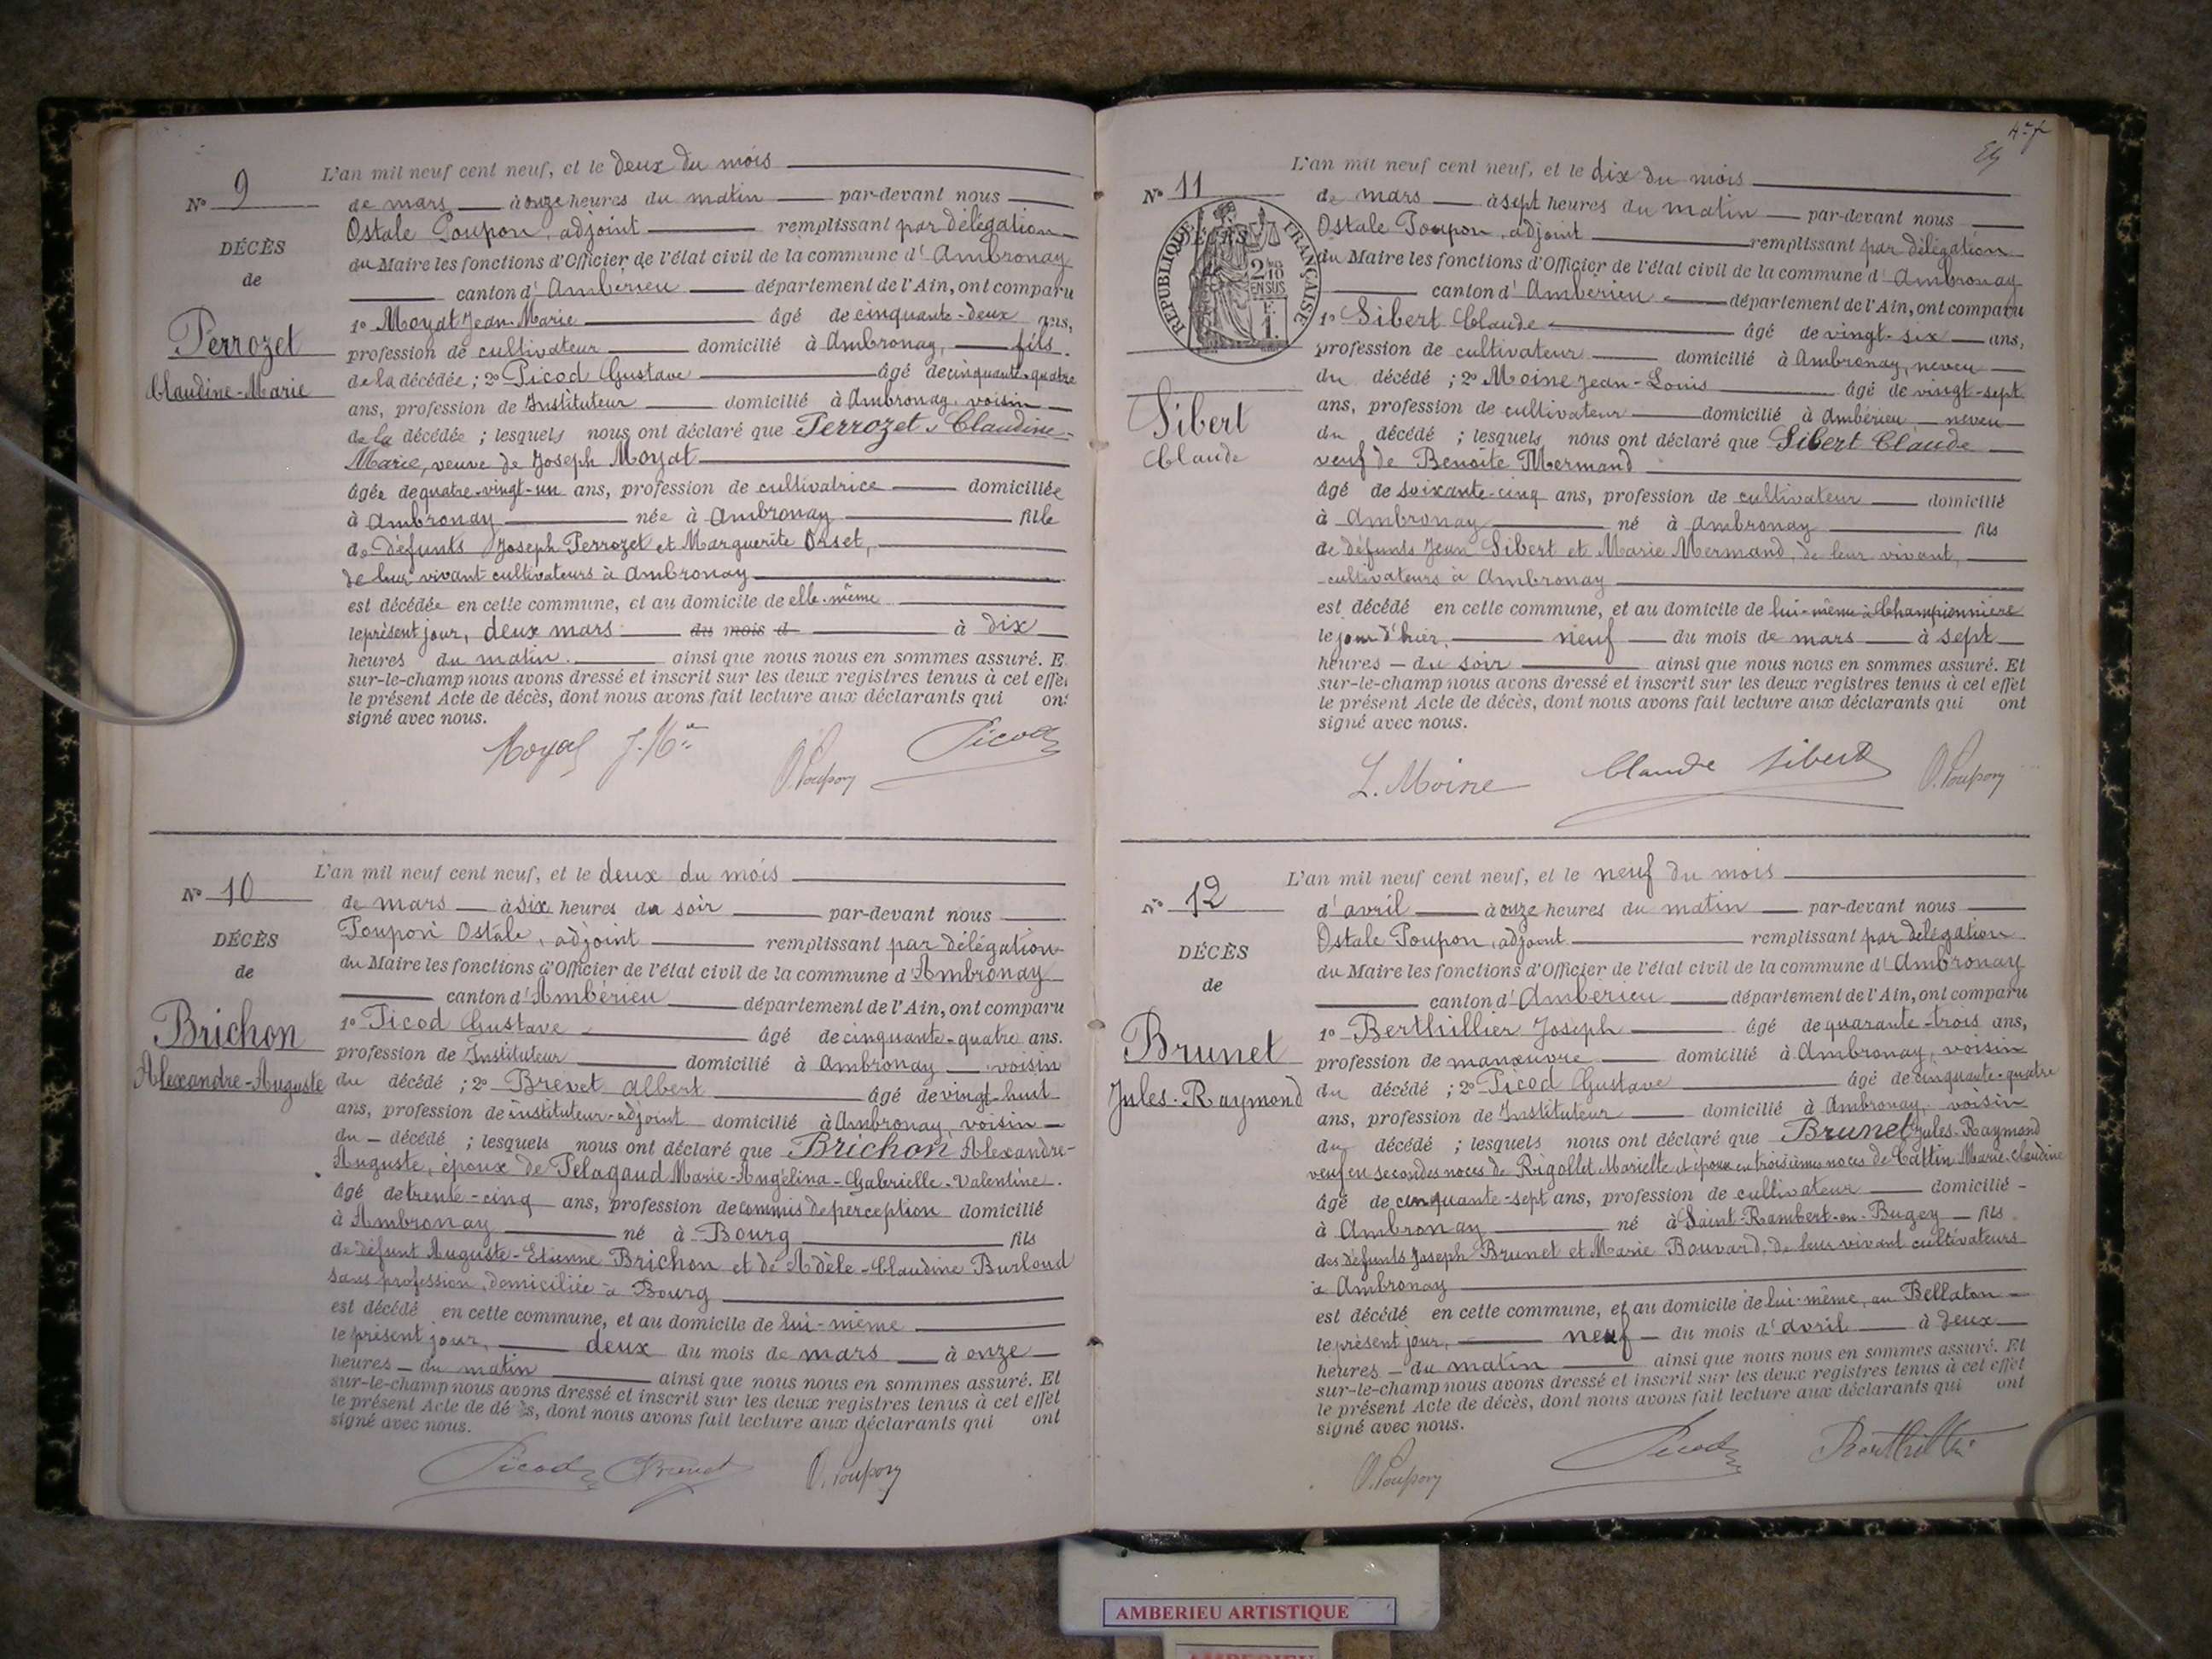 L'an mil neuf cent neuf, et le deux du mois
N° 9
de mars à onze heures du matin par-devant nous
Ostale Poupon, adjoint remplissant par délégation
DÉCÈS
du Maire les fonctions d'Officier de l'état civil de la commune d'Ambronay
de
canton d'Ambérieu département de l'Ain, ont comparu
1° Moyat Jean-Marie âgé de cinquante-deux ans,
Perrozet
profession de cultivateur domicilié à Ambronay, fils
Claudine-Marie
de la décédée ; 2° Picod Gustave âgé de cinquante-quatre
ans, profession de Instituteur domicilié à Ambronay, voisin
de la décédée ; lesquels nous ont déclaré que Perrozet Claudine-
Marie, veuve de Joseph Moyat
âgée de quatre-vingt-un ans, profession de cultivatrice domiciliée
à Ambronay née à Ambronay fille
de défunts Joseph Perrozet et Marguerite Orset,
de leur vivant cultivateurs à Ambronay
est décédée en cette commune, et au domicile de elle-même
le présent jour, deux mars du mois d à dix
heures du matin. ainsi que nous nous en sommes assuré. E
sur-le-champ nous avons dressé et inscrit sur les deux registres tenus à cet effet
le présent Acte de décès, dont nous avons fait lecture aux déclarants qui ont
signé avec nous.
Moyat J. Mie O. Poupon Picod
L'an mil neuf cent neuf, et le deux du mois
N° 10
de mars à six heures du soir par-devant nous
Poupon Ostale, adjoint remplissant par délégation
DÉCÈS
du Maire les fonctions d'Officier de l'état civil de la commune d'Ambronay
de
canton d'Ambérieu département de l'Ain, ont comparu
1° Picod Gustave âgé de cinquante-quatre ans.
Brichon
profession de Instituteur domicilié à Ambronay voisin
Alexandre-Auguste
du décédé ; 2° Brevet Albert âgé de vingt-huit
ans, profession de instituteur-adjoint domicilié à Ambronay, voisin
du décédé ; lesquels nous ont déclaré que Brichon Alexandre-
Auguste, époux de Pelagaud Marie-Angélina-Gabrielle-Valentine.
âgé de trente-cinq ans, profession de commis de perception domicilié
à Ambronay né à Bourg fils
de défunt Auguste-Etienne Brichon et de Adèle-Claudine Burloud
sans profession, domiciliée à Bourg
est décédé en cette commune, et au domicile de lui-même
le présent jour, deux du mois de mars à onze
heures du matin ainsi que nous nous en sommes assuré. Et
sur-le-champ nous avons dressé et inscrit sur les deux registres tenus à cet effet
le présent Acte de décès, dont nous avons fait lecture aux déclarants qui ont
signé avec nous.
Picod Brevet O. Poupon
L'an mil neuf cent neuf, et le dix du mois
N° 11
de mars à sept heures du matin par-devant nous
Ostale Poupon, adjoint remplissant par délégation
DÉCÈS
RÉPUBLIQUE FRANÇAISE
2/10 EN SUS
F. 1.
du Maire les fonctions d'Officier de l'état civil de la commune d'Ambronay
canton d'Ambérieu département de l'Ain, ont comparu
1° Sibert Claude âgé de vingt-six ans,
profession de cultivateur domicilié à Ambronay, neveu
du décédé ; 2° Moine Jean-Louis âgé de vingt-sept
Sibert
Claude
ans, profession de cultivateur domicilié à Ambérieu neveu
du décédé ; lesquels nous ont déclaré que Sibert Claude
veuf de Benoîte Mermand
âgé de soixante-cinq ans, profession de cultivateur domicilié
à Ambronay né à Ambronay fils
de défunts Jean Sibert et Marie Mermand, de leur vivant,
cultivateurs à Ambronay
est décédé en cette commune, et au domicile de lui-même à Championnière
le jour d'hier, neuf du mois de mars à sept
heures du soir ainsi que nous nous en sommes assuré. Et
sur-le-champ nous avons dressé et inscrit sur les deux registres tenus à cet effet
le présent Acte de décès, dont nous avons fait lecture aux déclarants qui ont
signé avec nous.
L. Moine Claude Sibert O. Poupon
L'an mil neuf cent neuf, et le neuf du mois
N° 12
d'avril à onze heures du matin par-devant nous
Ostale Poupon, adjoint remplissant par délégation
DÉCÈS
du Maire les fonctions d'Officier de l'état civil de la commune d'Ambronay
de
canton d'Ambérieu département de l'Ain, ont comparu
1° Berthillier Joseph âgé de quarante-trois ans,
Brunet
profession de manœuvre domicilié à Ambronay, voisin
Jules-Raymond
du décédé ; 2° Picod Gustave âgé de cinquante-quatre
ans, profession de Instituteur domicilié à Ambronay, voisin
du décédé ; lesquels nous ont déclaré que Brunet Jules-Raymond
veuf en secondes noces de Rigollet Mariette et époux en troisièmes noces de Cattin Marie-Claudine
âgé de cinquante-sept ans, profession de cultivateur domicilié
à Ambronay né à Saint-Rambert-en-Bugey fils
des défunts Joseph Brunet et Marie Bouvard, de leur vivant cultivateurs
à Ambronay
est décédé en cette commune, et au domicile de lui-même, au Bellaton
le présent jour, neuf du mois d'avril à deux
heures du matin ainsi que nous nous en sommes assuré. Et
sur-le-champ nous avons dressé et inscrit sur les deux registres tenus à cet effet
le présent Acte de décès, dont nous avons fait lecture aux déclarants qui ont
signé avec nous.
O. Poupon Picod Berthillier
AMBERIEU ARTISTIQUE
AMBERIEU